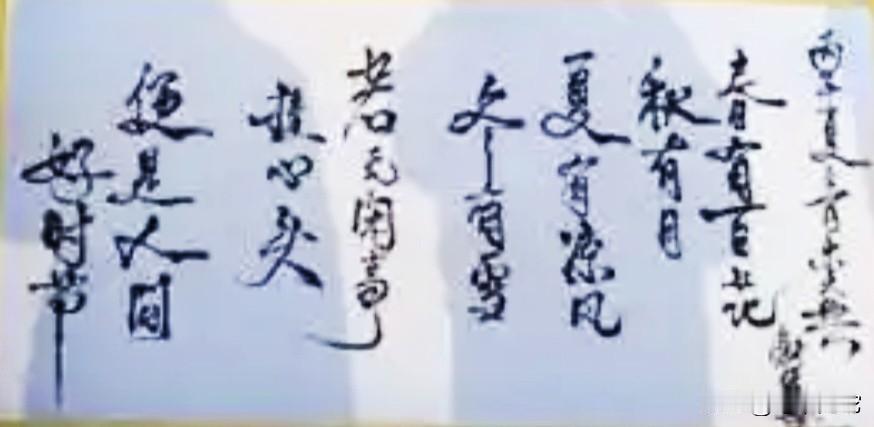 春有百花
秋有月
夏有凉风
冬有雪
若无闲事
挂心头
便是人间
好时节